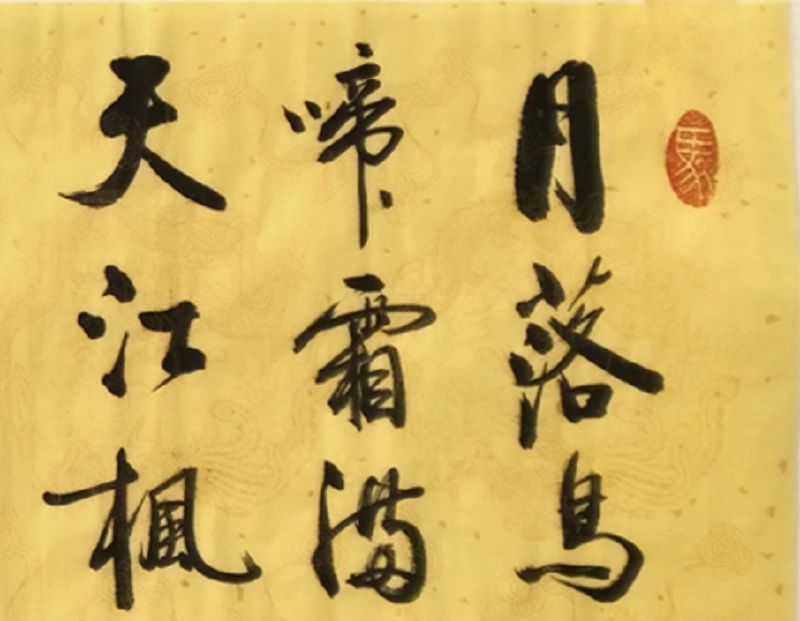 月落烏
啼霜滿
天江楓